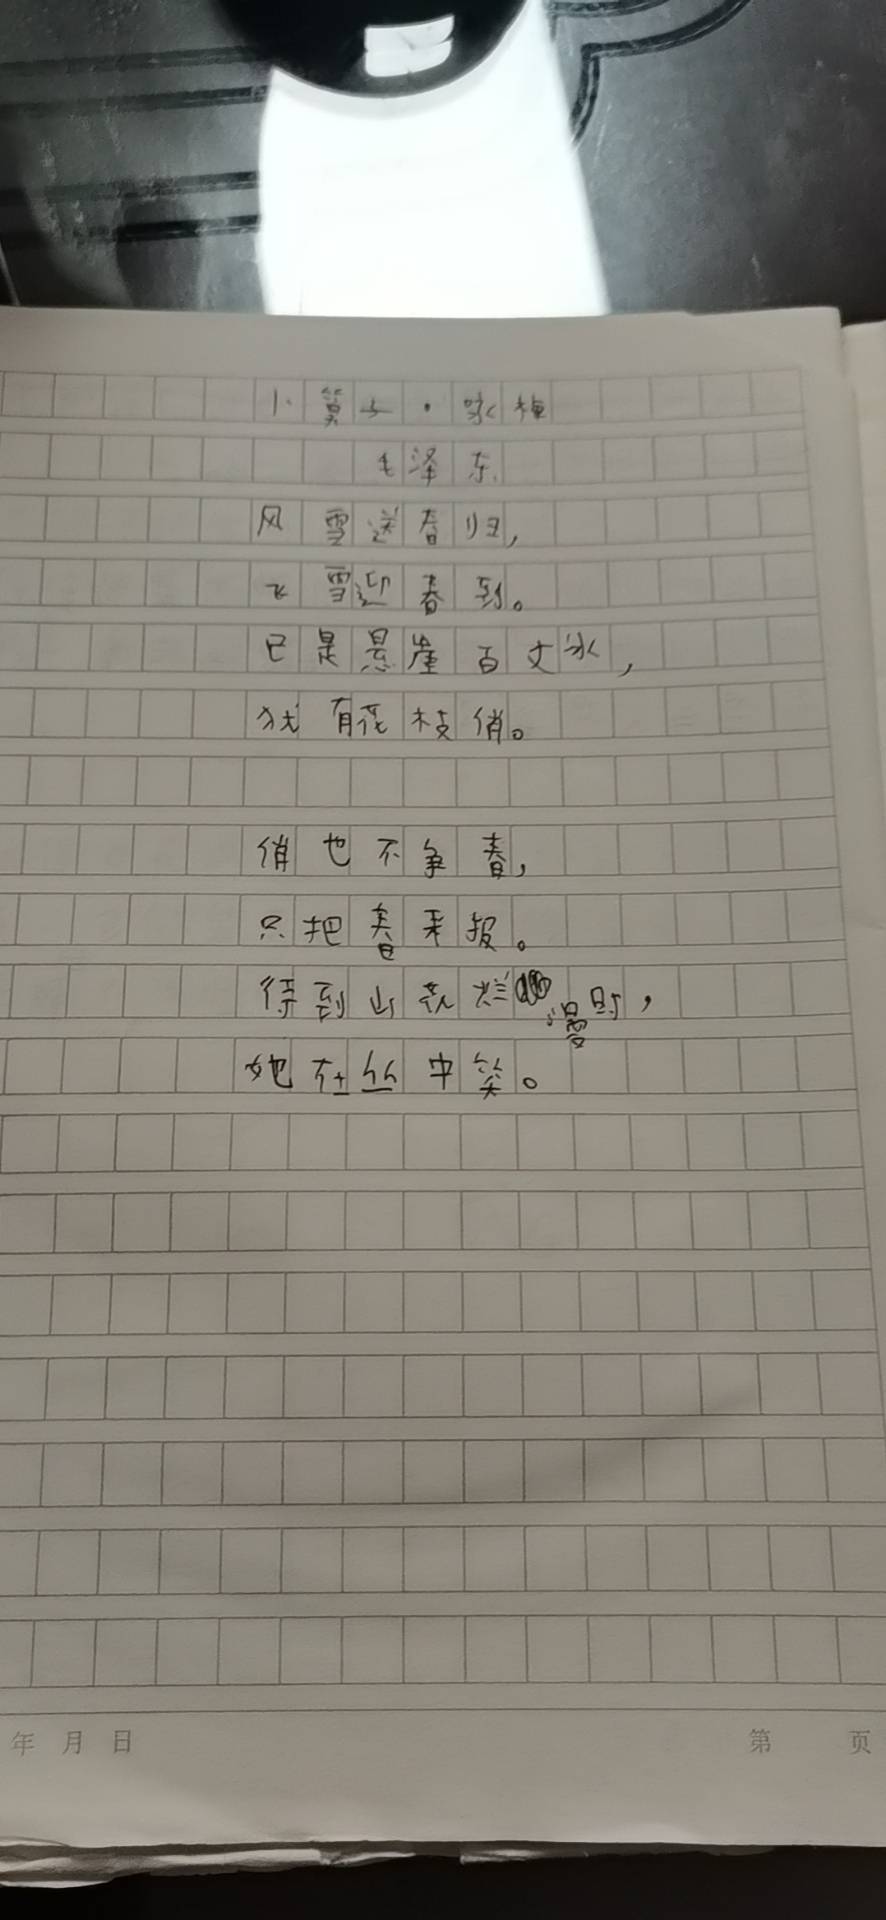 卜算子·咏梅
毛泽东
风雪送春归，
飞雪迎春到。
已是悬崖百丈冰，
犹有花枝俏。
俏也不争春，
只把春来报。
待到山花烂漫时，
她在丛中笑。
年 月 日 第 页